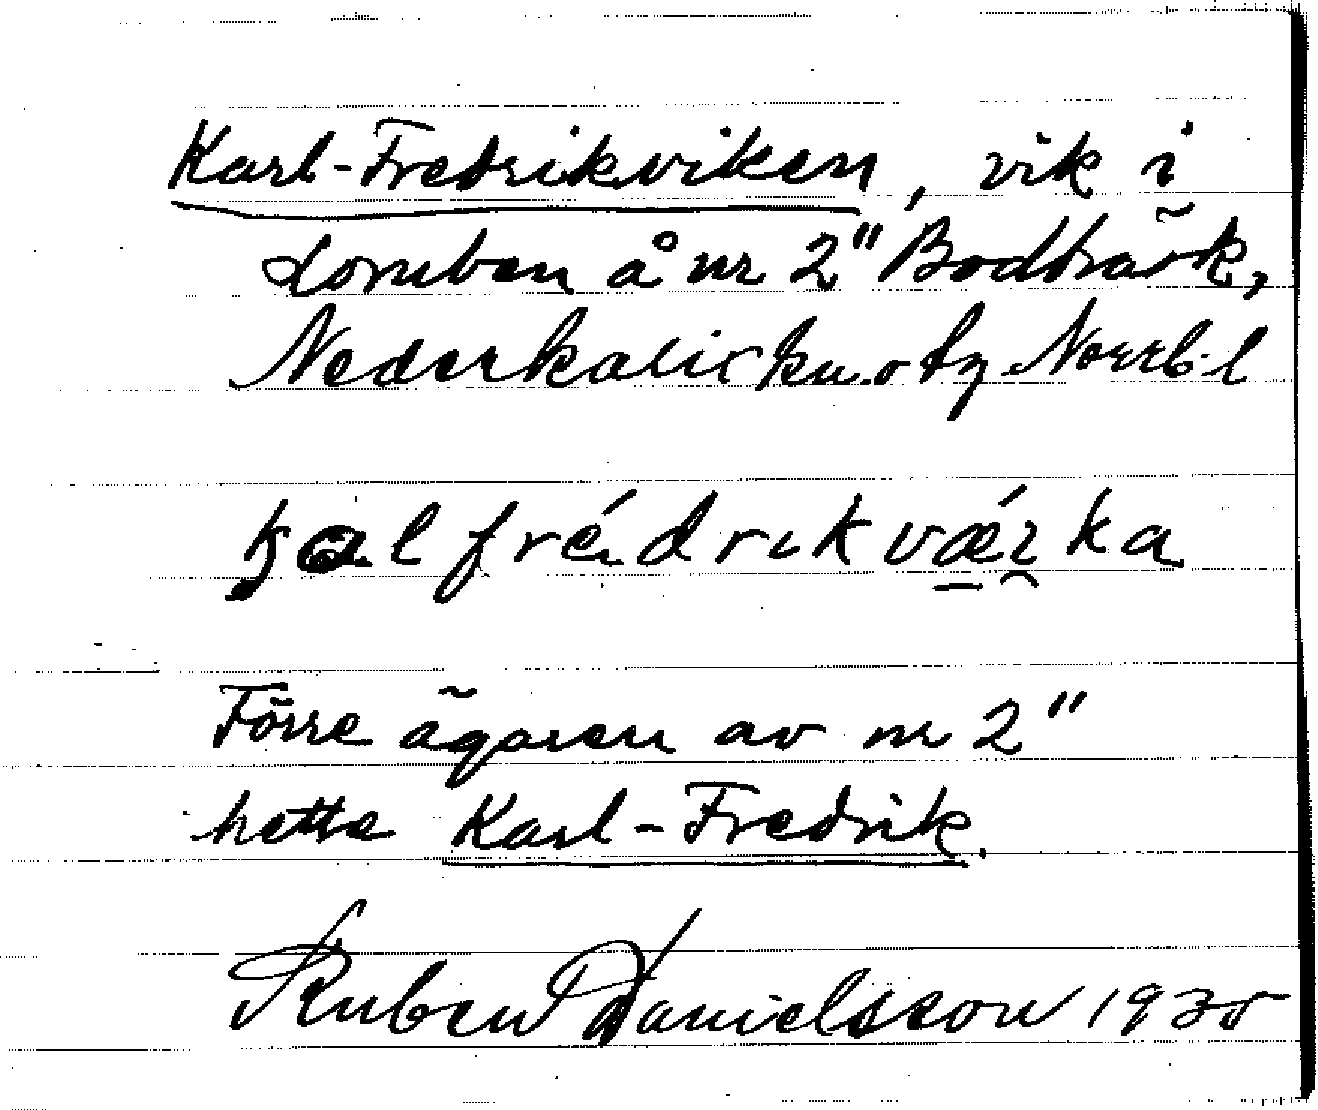 Karl-Fredrikviken, vik i
Loruben å nr 2" Bodträsk,
Nederkalix kn. o tg Norrb. l
kalfrédrikvǽika
Förre ägaren av nr 2"
hette Karl-Fredrik.
Ruben Danielsson 1935